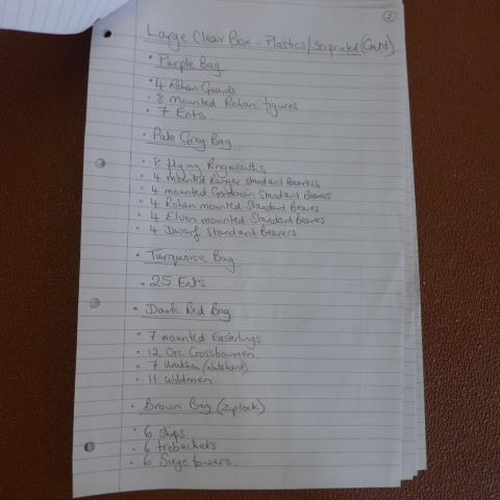 2
Large Clear Box - Plastics/3D painted (Contd)
• Purple Bag
• 4 Rohan Guards
• 8 Mounted Rohan figures
• 7 Ents
• Pale Grey Bag
• 8 flying Ringwraiths
• 4 mounted Ranger standard Bearers
• 4 mounted Gondorian Standard Bearers
• 4 Rohan mounted Standard Bearers
• 4 Elven mounted Standard Bearers
• 4 Dwarf Standard Bearers
• Turquoise Bag
• 25 Ents
• Dark Red Bag
• 7 mounted Easterlings
• 12 Orc Crossbowmen
• 7 Urukhai (whitehand)
• 11 Wildmen
• Brown Bag (ziplock)
• 6 ships
• 6 trebuchets
• 6 Siege towers